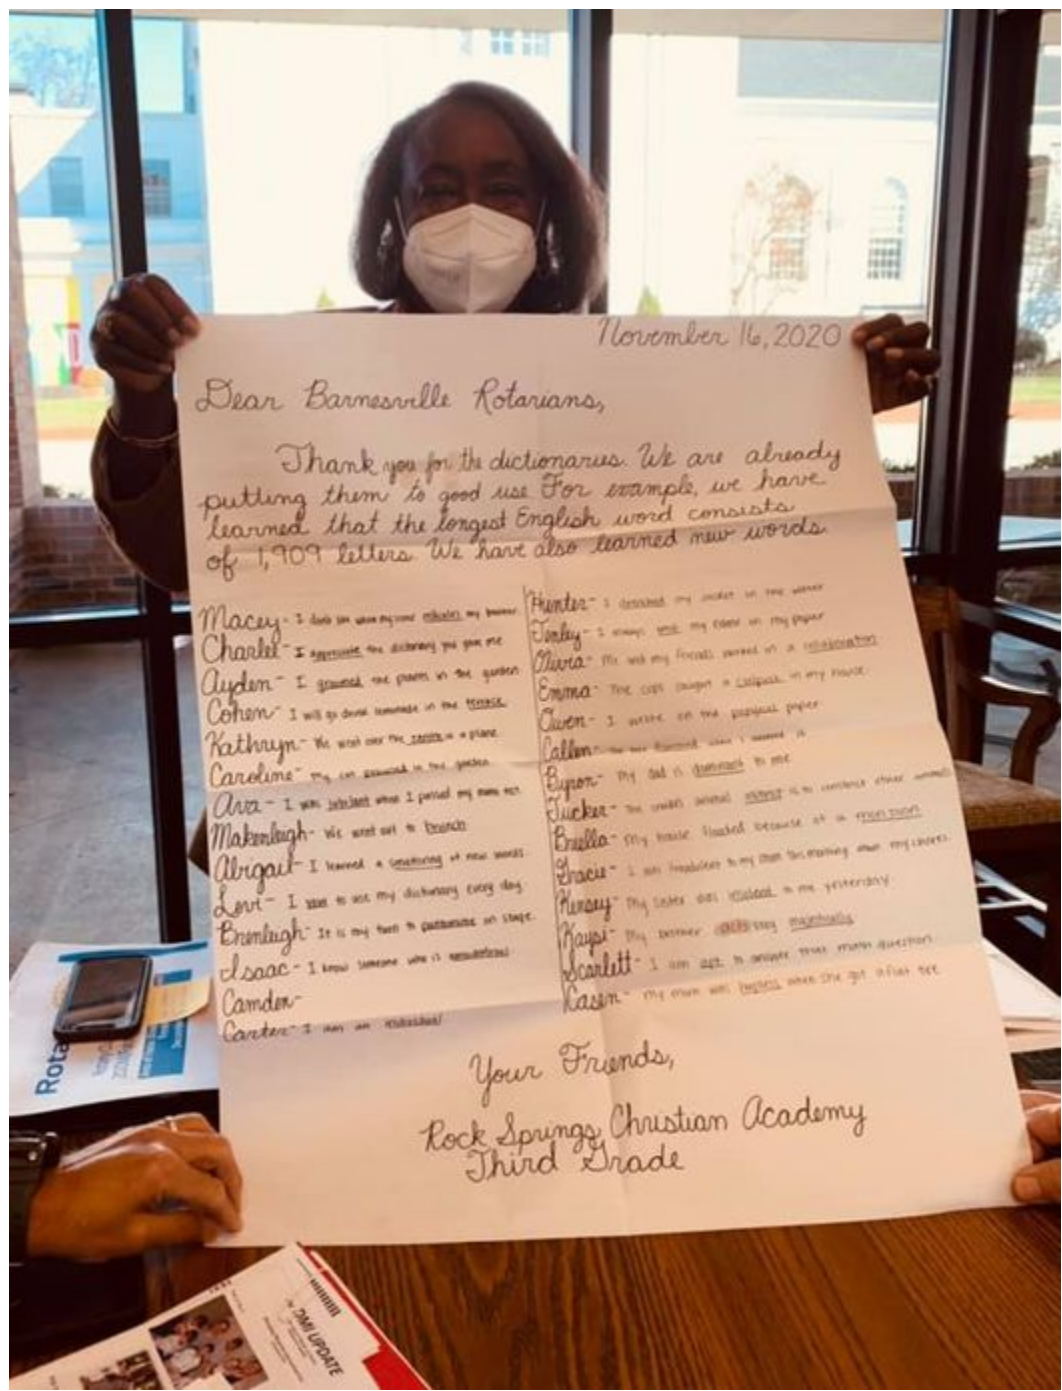 November 16, 2020
Dear Barnesville Rotarians,
Thank you for the dictionaries. We are already
putting them to good use For example, we have
learned that the longest English word consists
of 1,909 letters. We have also learned new words.
Macey- I don't when my my
Charlee- I appreciate the dictionary you gave me
Ayden- I the plants in the garden
Cohen- I will go drink lemonade in the terrace.
Kathryn- We went over the in a plane.
Caroline- My cat in the garden
Ava- I was jubilant when I passed my math test.
Makenleigh- We went out to brunch.
Abigail- I learned a smattering of new words.
Levi- I to use my dictionary every day.
Brenleigh- It is my turn to on stage.
Isaac- I know someone who is
Camden-
Carter- I am an
Hunter- I my in the
Tenley- I always my name on my paper
Olivia- Me and my friends worked in a collaboration.
Emma- The cops caught a culprit in my house.
Owen- I write on the papyrus paper
Callen-
Byron- My dad is dominant to me
Tucker- The animal instinct is to other animals.
Briella- My house flooded because of a monsoon.
Gracie- I am to my mom this morning my chores.
Kensey- My sister was insolent to me yesterday.
Kaysi- My brother acts very
Scarlett- I am apt to answer that math question.
Kasen- My mom was hapless when she got a flat tire.
Your Friends,
Rock Springs Christian Academy
Third Grade
Rota
DMI UPDATE